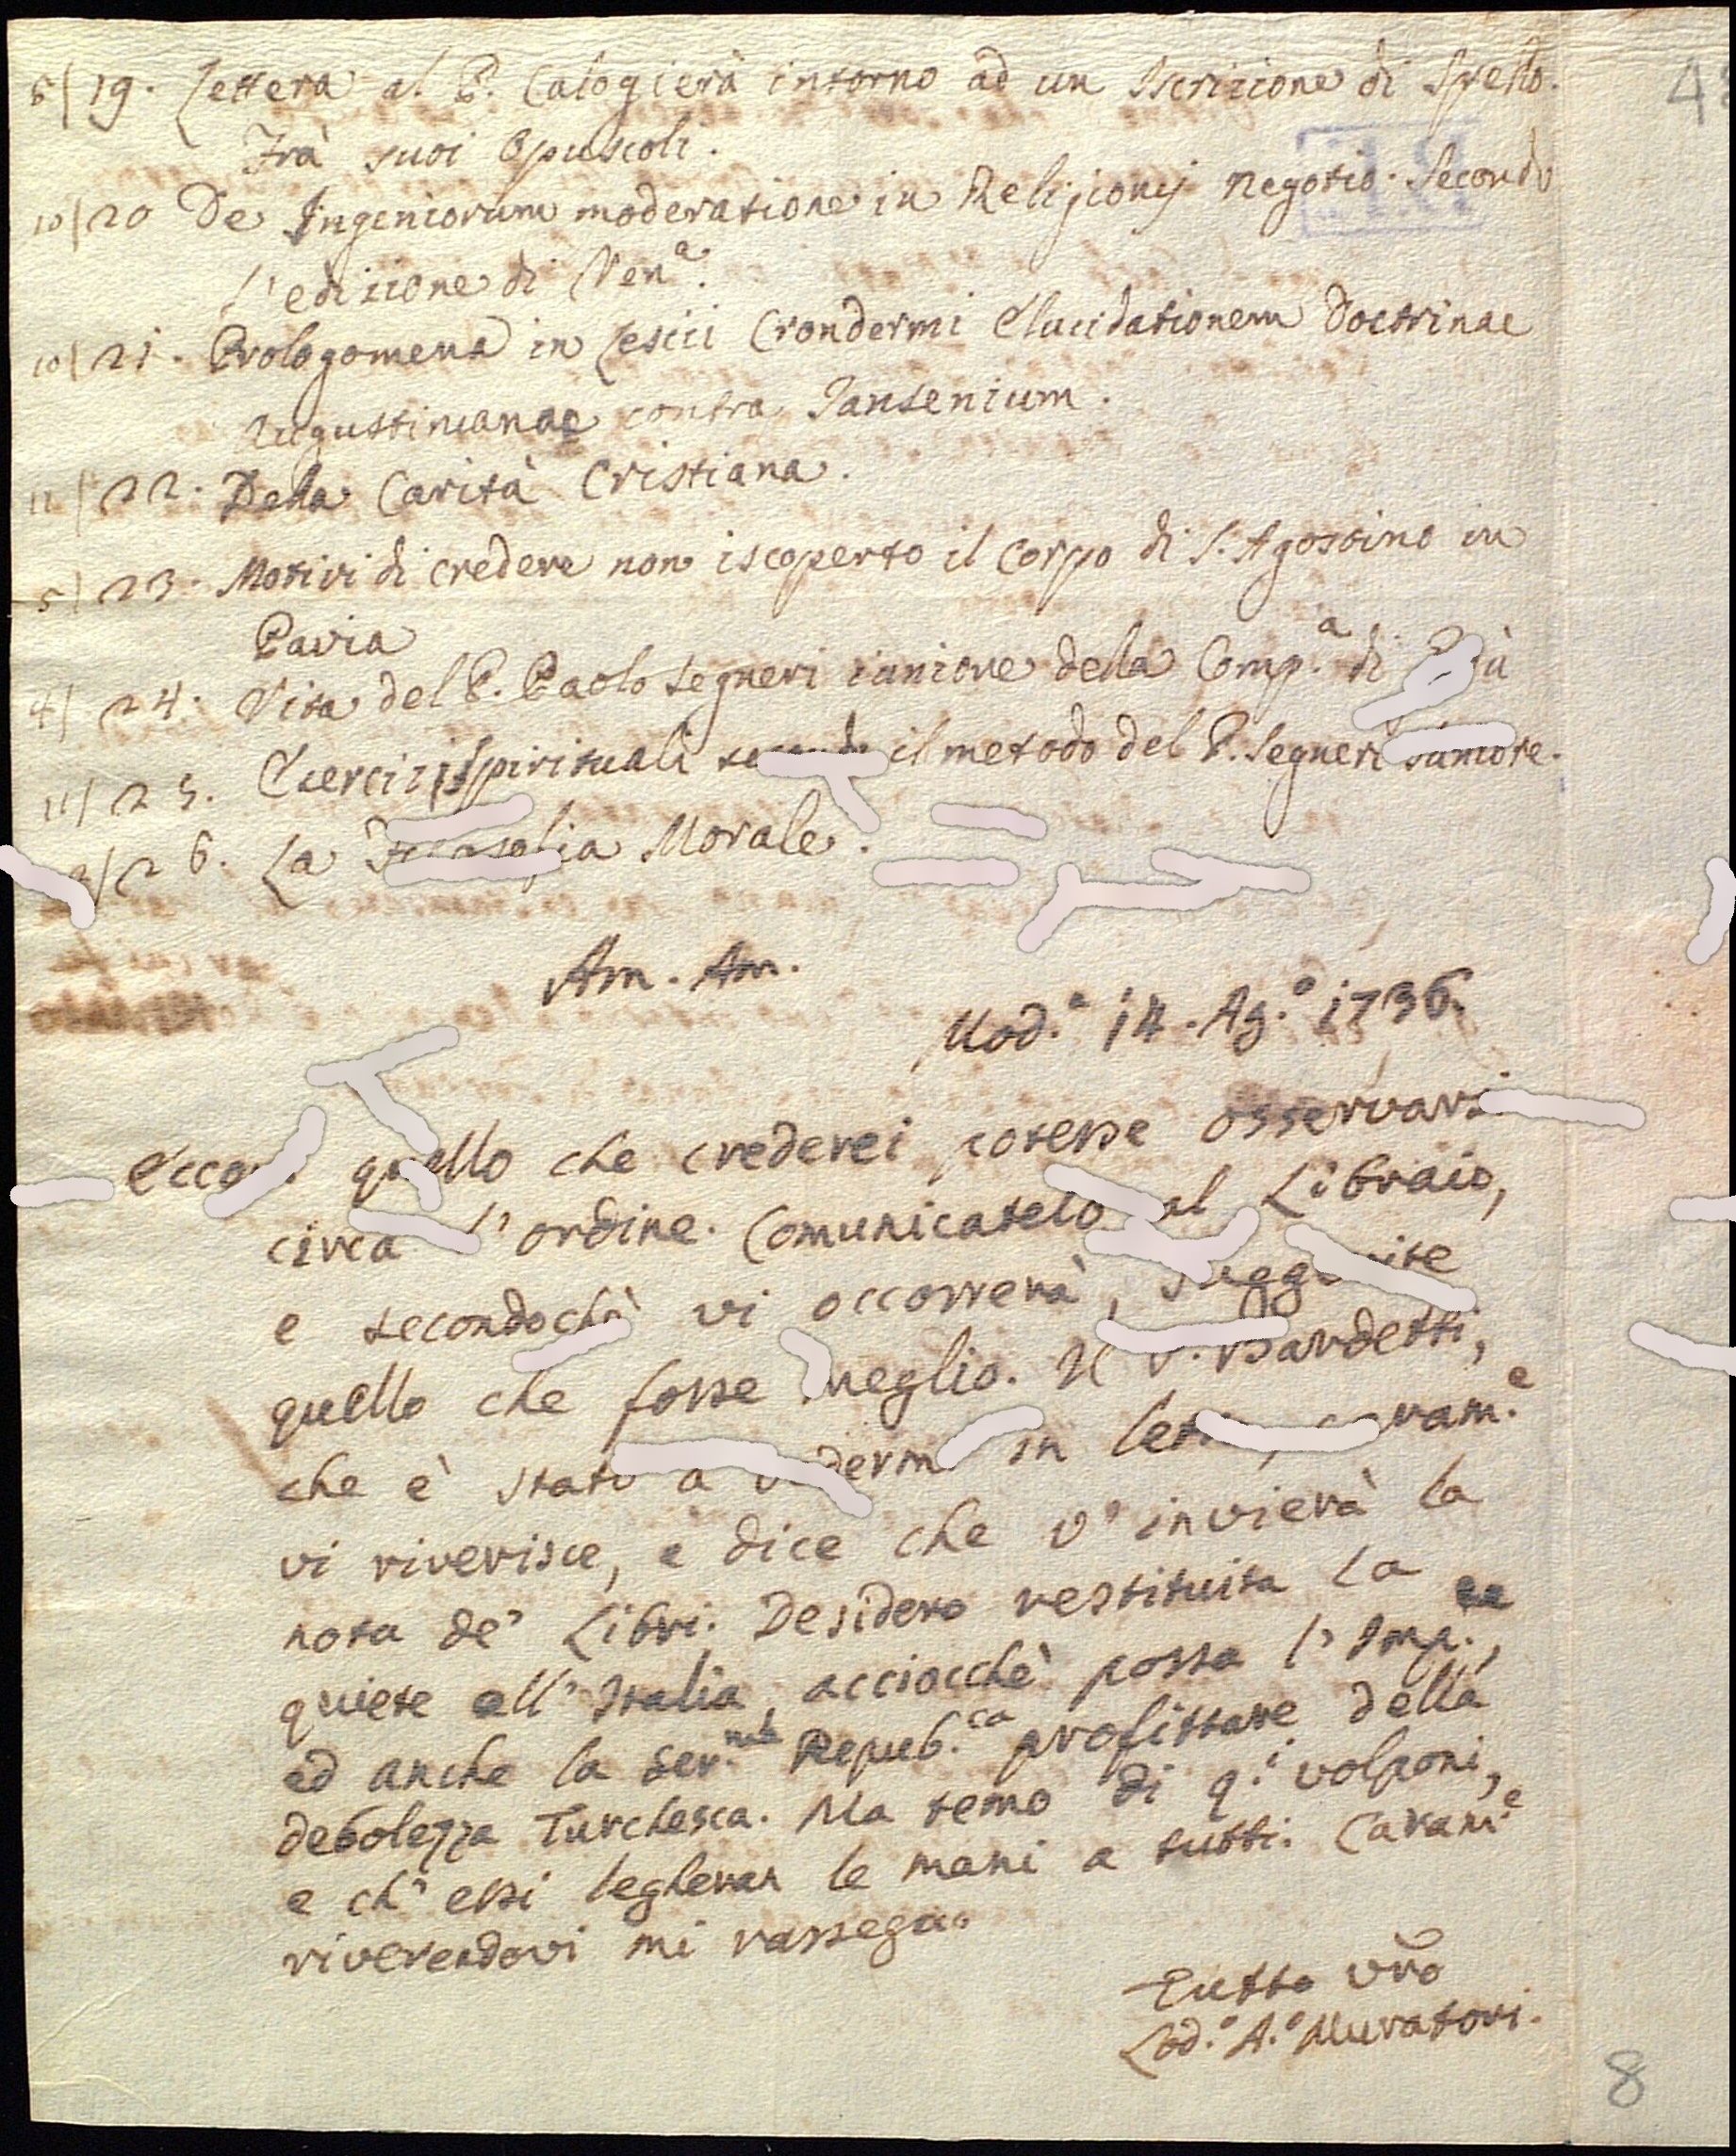 5/ 19. Lettera al P. Calogierà intorno ad un Iscrizione di Spello.
Frà suoi Opuscoli.
10/ 20 De Ingeniorum moderatione in Religionis negotio. Secondo
l'edizione di Ven.ª
10/ 21. Prologomena in Lescii Crondermi Elucidationem Doctrinae
Augustinianae contra Jansenium.
11/ 22. Della Carità Cristiana.
5/ 23. Motivi di credere non iscoperto il Corpo di S. Agostino in
Pavia
4/ 24. Vita del P. Paolo Segneri iuniore della Comp.ª di
11/ 25. Esercizi Spirituali il metodo del P. Segneri
/ 26. La Morale.
Am. Am.
Mod.ª 14. Ag.º 1736.
quello che crederei potesse osservarsi
circa l'ordine. Comunicatelo al Libraio,
e secondochè vi occorrerà,
quello che fosse meglio. Il P. Bardetti,
che è stato a in caram.e
vi riverisce, e dice che v'invierà la
nota de' Libri. Desidero restituita la
quiete all'Italia, acciocchè possa l'Imp.re,
ed anche la Ser.ma Repub.ca profittare della
debolezza Turchesca. Ma temo di q.i volponi,
e ch'essi legheran le mani a tutti. Caram.e
riverendovi mi rassegno
Tutto vro
Lod.º A.º Muratori.
8